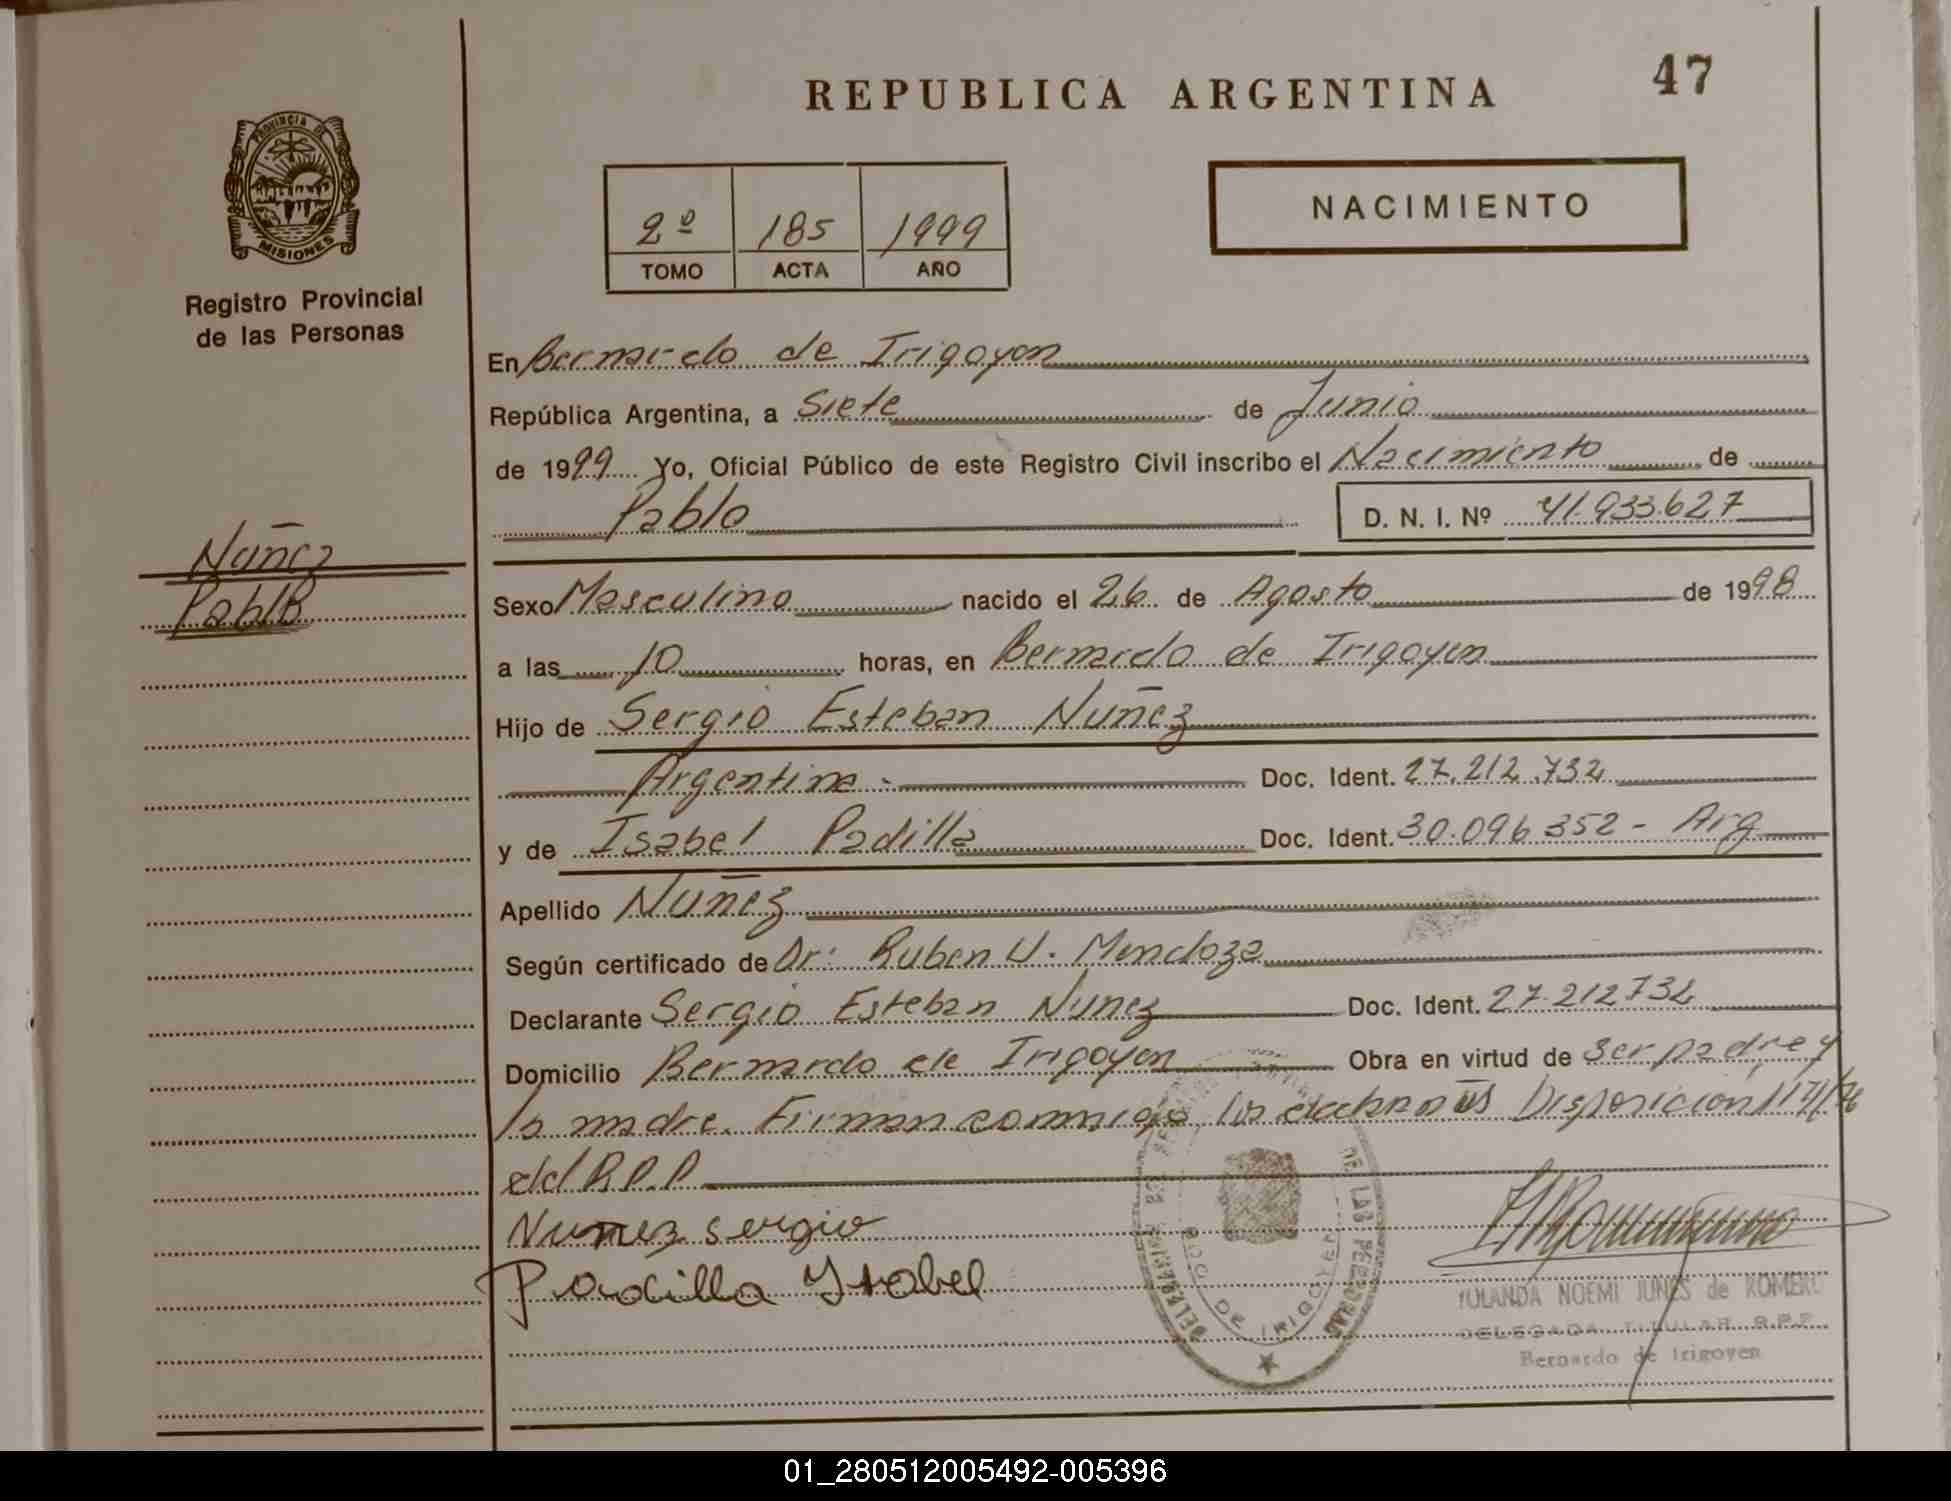 47
REPUBLICA ARGENTINA
PROVINCIA DE
MISIONES
Registro Provincial
de las Personas
2º 185 1999
TOMO ACTA AÑO
NACIMIENTO
En Bernardo de Irigoyen
República Argentina, a Siete de Junio
de 1999 Yo, Oficial Público de este Registro Civil inscribo el Nacimiento de
Pablo D. N. I. Nº 41.933.627
Nuñez
Pablo
Sexo Masculino nacido el 26 de Agosto de 1998
a las 10 horas, en Bernardo de Irigoyen
Hijo de Sergio Esteban Nuñez
Argentina.- Doc. Ident. 27.212.732
y de Isabel Padilla Doc. Ident. 30.096.352 - Arg
Apellido Nuñez
Según certificado de Dr: Ruben U. Mendoza
Declarante Sergio Esteban Nunez Doc. Ident. 27.212732
Domicilio Bernardo de Irigoyen Obra en virtud de ser padre y
la madre. Firman conmigo los Disposición
del R.P.P
Nunez Sergio
Padilla Ysabel
DE LAS PERSONAS
DE IRIGOYEN
YOLANDA NOEMI JUNES de ROMERO
DELEGADA TITULAR R.P.P.
Bernardo de Irigoyen
01_280512005492-005396